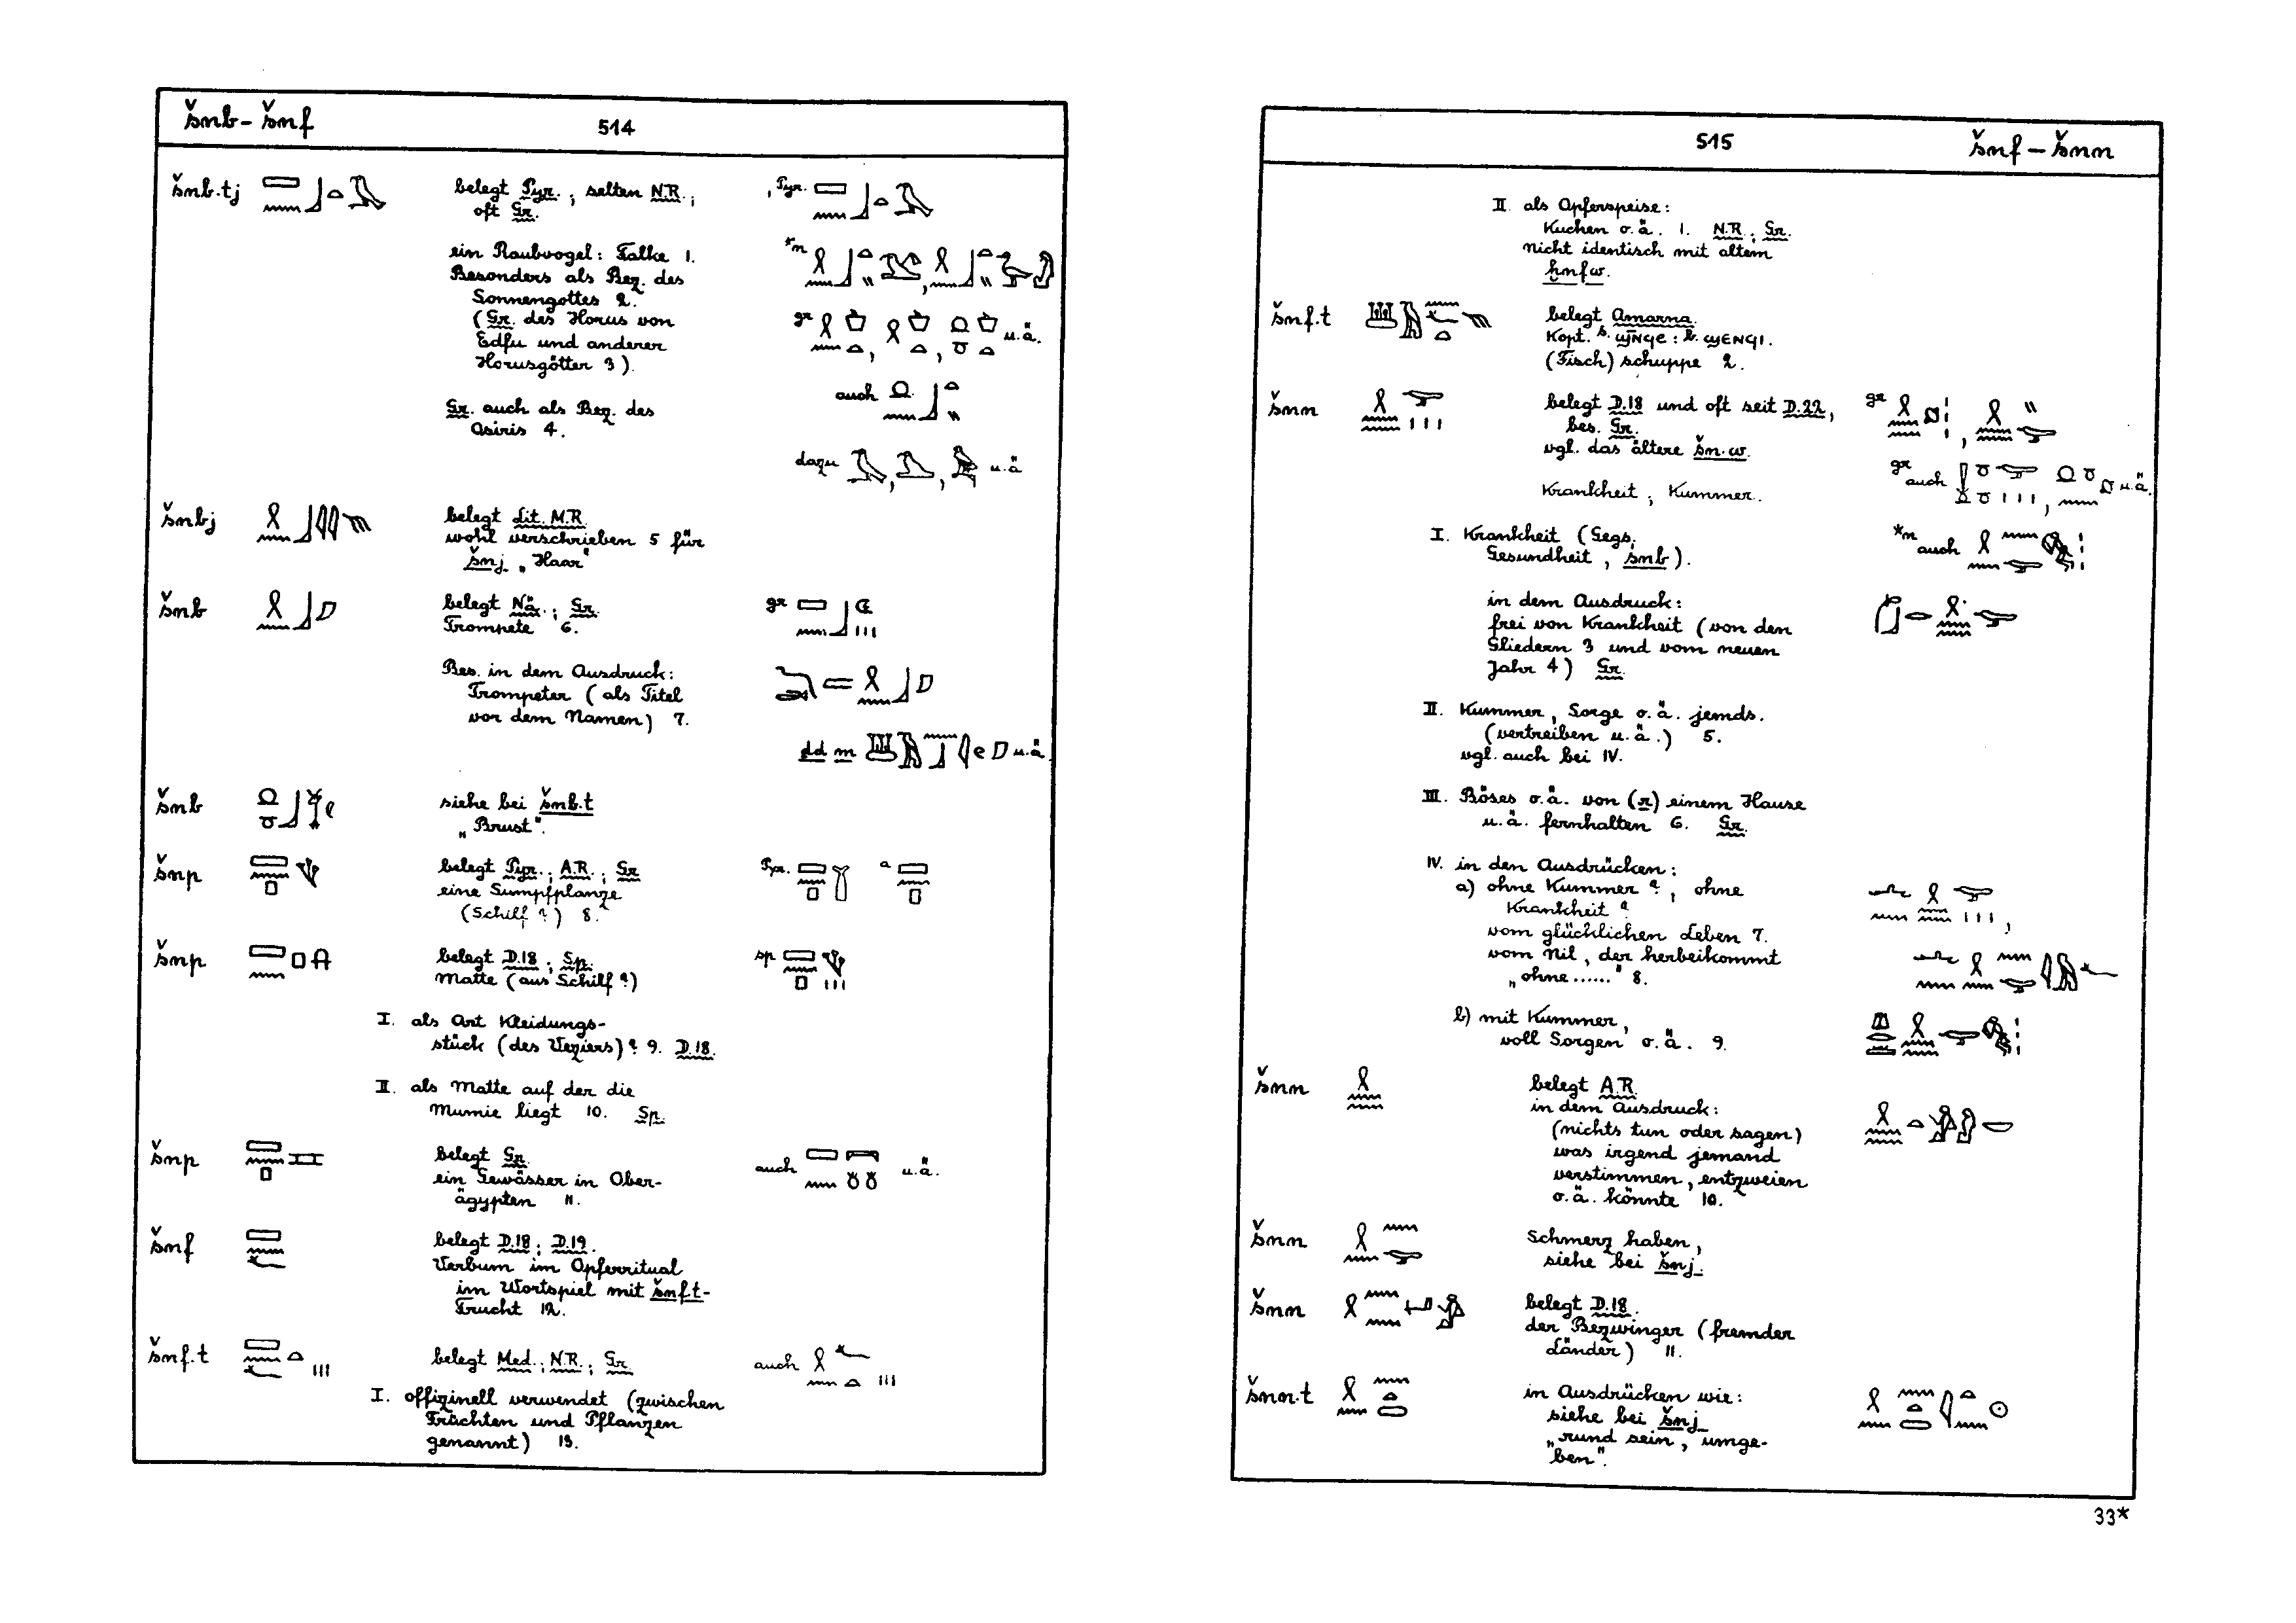 šnb – šnf
514
šnb.tj
belegt Pyr.; selten N.R.;
oft Gr.
Pyr.
ein Raubvogel: Falke 1.
Besonders als Bez. des
Sonnengottes 2.
(Gr. des Horus von
Edfu und anderer
Horusgötter 3).
*n
gr
u.ä.
auch
Gr. auch als Bez. des
Osiris 4.
dazu
u.ä
šnbj
belegt Lit. M.R.
wohl verschrieben 5 für
šnj „Haar"
šnb
belegt Nä.; Gr.
Trompete 6.
gr
Bes. in dem Ausdruck:
Trompeter (als Titel
vor dem Namen) 7.
dd m
u.ä.
šnb
siehe bei šnb.t
„Brust".
šnp
belegt Pyr.; A.R.; Gr
eine Sumpfpflanze
(Schilf?) 8.
Pyr.
a
šnp
belegt D.18; Sp.
Matte (aus Schilf?)
sp
I. als Art Kleidungs-
stück (des Veziers)? 9. D.18.
II. als Matte auf der die
Mumie liegt 10. Sp.
šnp
belegt Gr.
ein Gewässer in Ober-
ägypten 11.
auch
u.ä.
šnf
belegt D.18; D.19.
Verbum im Opferritual
im Wortspiel mit šnf.t-
Frucht 12.
šnf.t
belegt Med.; N.R.; Gr.
auch
I. offizinell verwendet (zwischen
Früchten und Pflanzen
genannt) 13.
515
šnf – šnn
II. als Opferspeise:
Kuchen o.ä. 1. N.R.; Gr.
nicht identisch mit altem
ḫnfw.
šnf.t
belegt Amarna.
Kopt. s. ϣⲛ̄ϥⲉ : b. ϣⲉⲛϥⲓ.
(Fisch)schuppe 2.
šnn
belegt D.18 und oft seit D.22,
bes. Gr.
vgl. das ältere šn.w.
gr
Krankheit; Kummer.
gr
auch
u.ä.
I. Krankheit (Gegs.
Gesundheit, snb).
*n
auch
in dem Ausdruck:
frei von Krankheit (von den
Gliedern 3 und vom neuen
Jahr 4) Gr.
II. Kummer, Sorge o.ä. jemds.
(vertreiben u.ä.) 5.
vgl. auch bei IV.
III. Böses o.ä. von (r) einem Hause
u.ä. fernhalten 6. Gr.
IV. in den Ausdrücken:
a) ohne Kummer?, ohne
Krankheit?
vom glücklichen Leben 7.
vom Nil, der herbeikommt
„ohne......" 8.
b) mit Kummer,
voll Sorgen o.ä. 9.
šnn
belegt A.R.
in dem Ausdruck:
(nichts tun oder sagen)
was irgend jemand
verstimmen, entzweien
o.ä. könnte 10.
šnn
Schmerz haben,
siehe bei šnj.
šnn
belegt D.18.
der Bezwinger (fremder
Länder) 11.
šnn.t
in Ausdrücken wie:
siehe bei šnj
„rund sein, umge-
ben".
33*